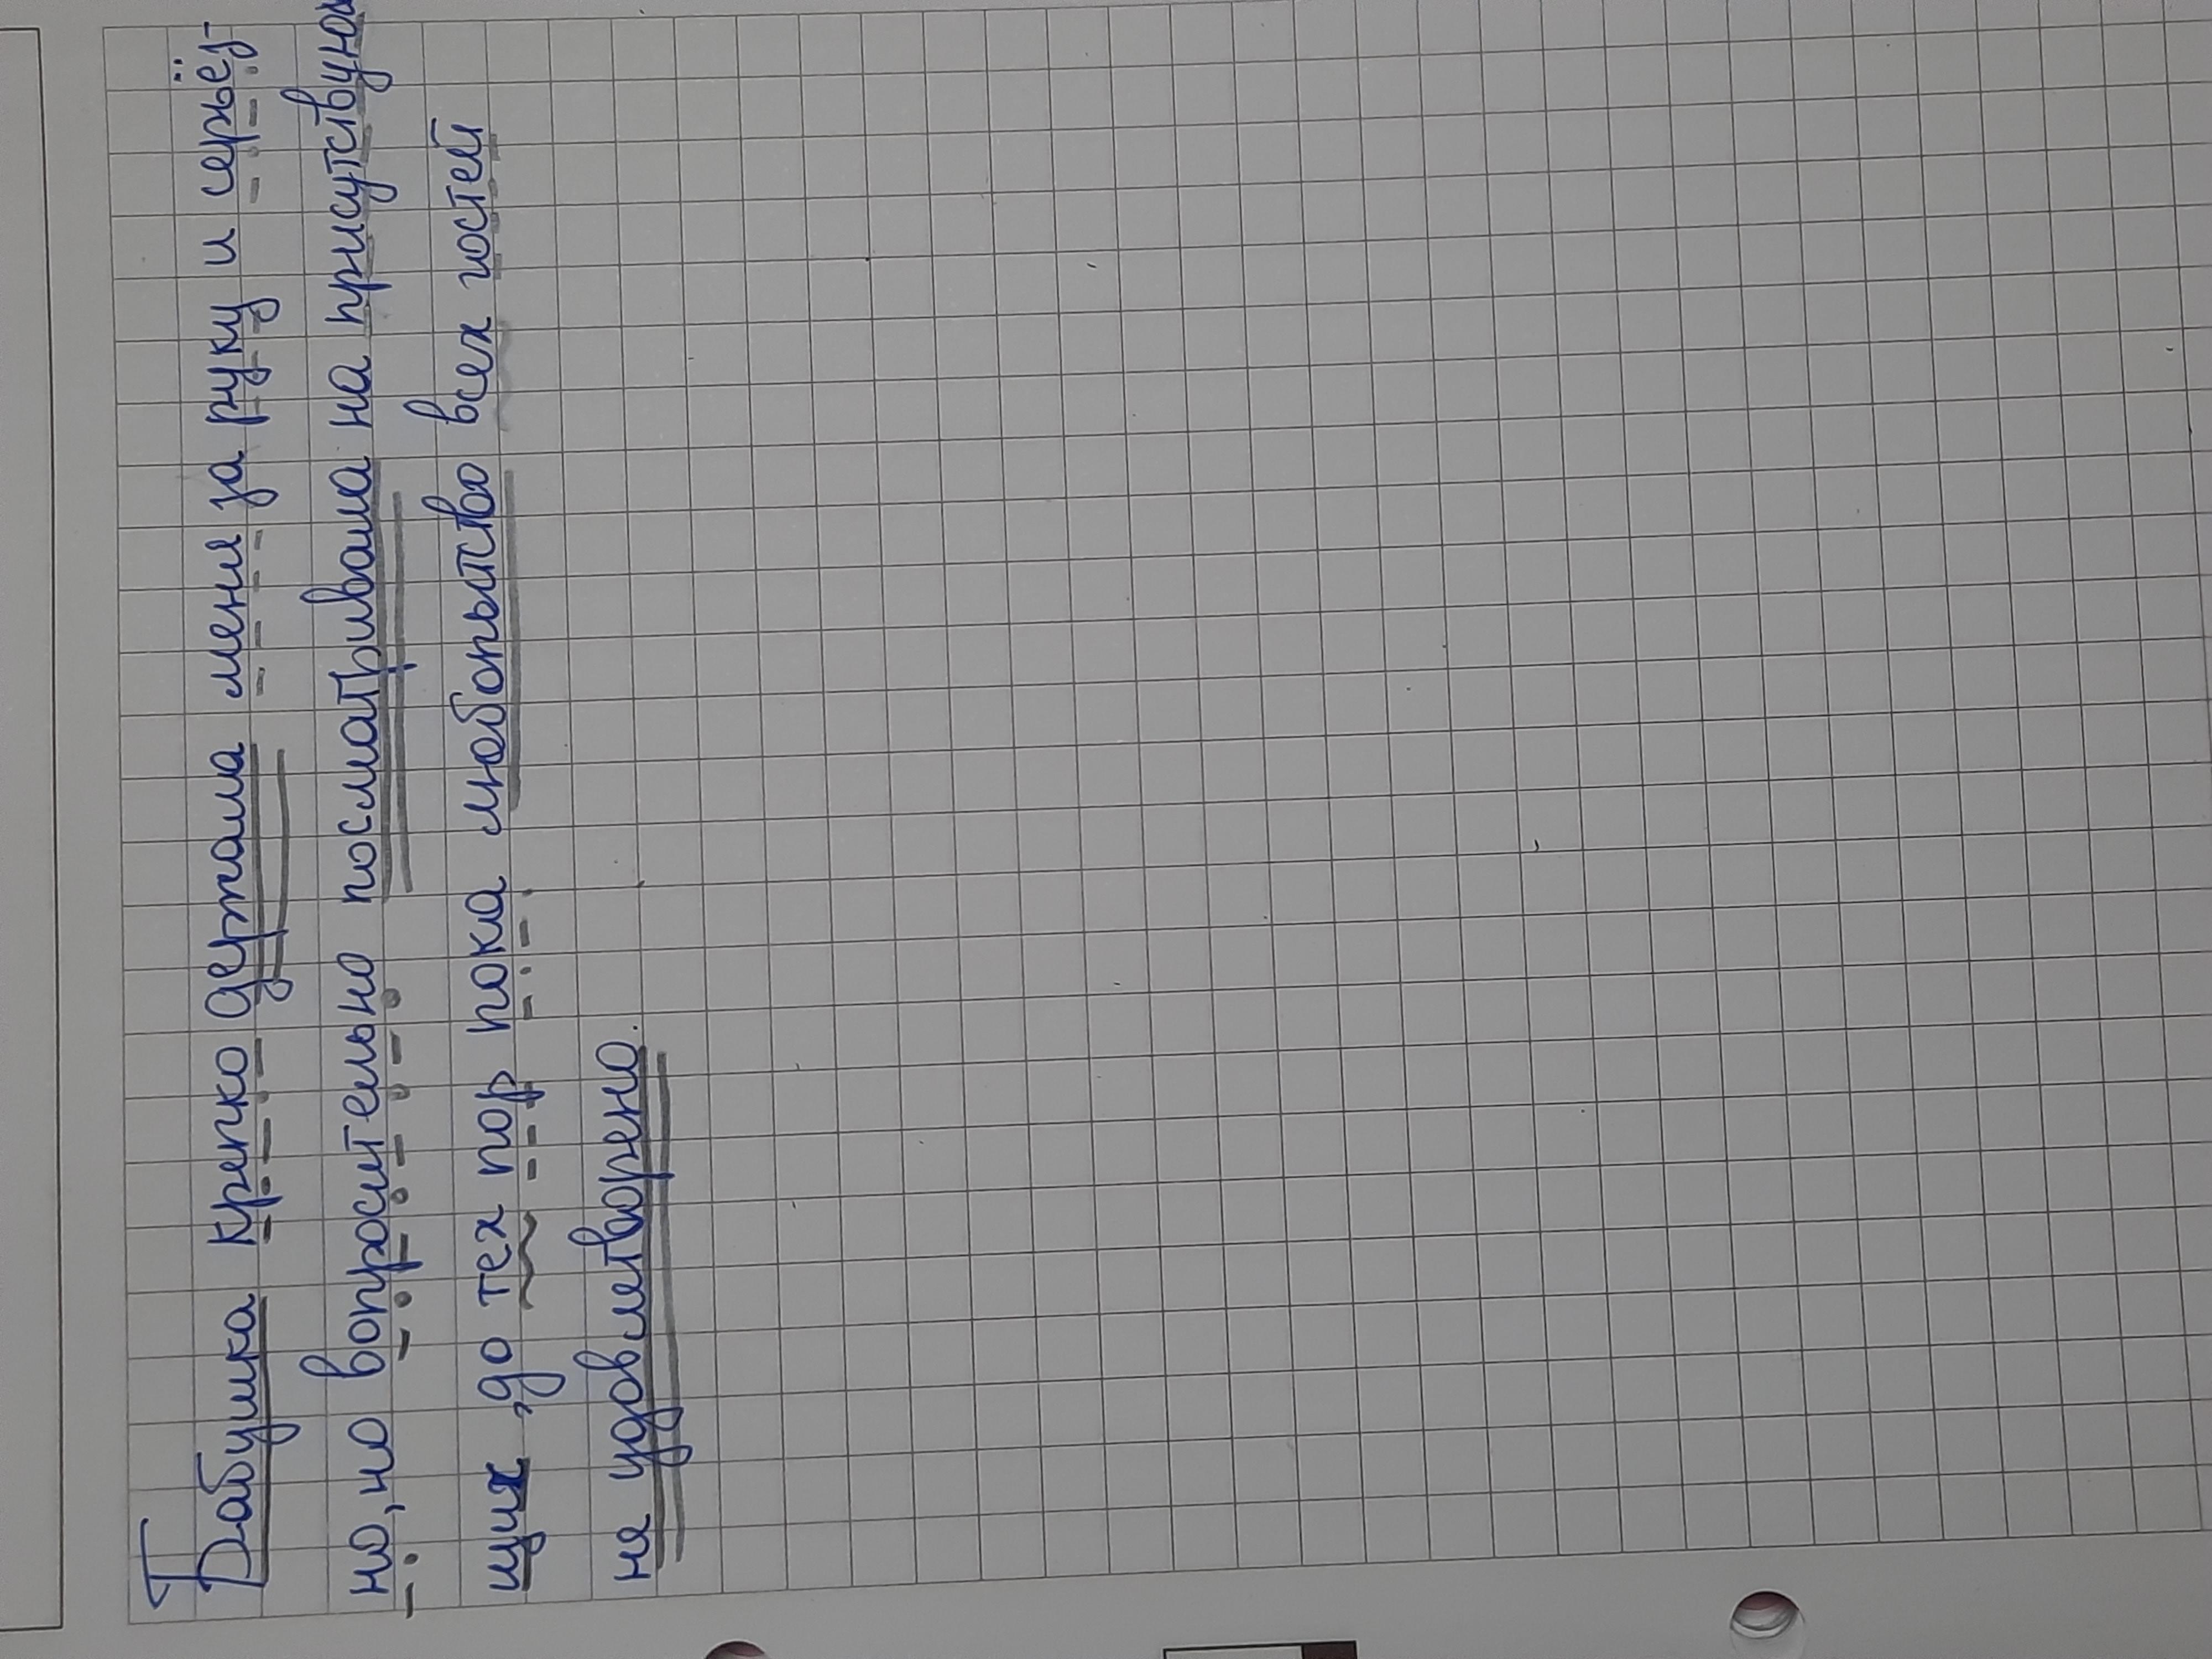 Бабушка крепко держала меня за руку и серьёз-
но, но вопросительно посматривала на присутствую
щих, до тех пор пока любопытство всех гостей
не удовлетворено.